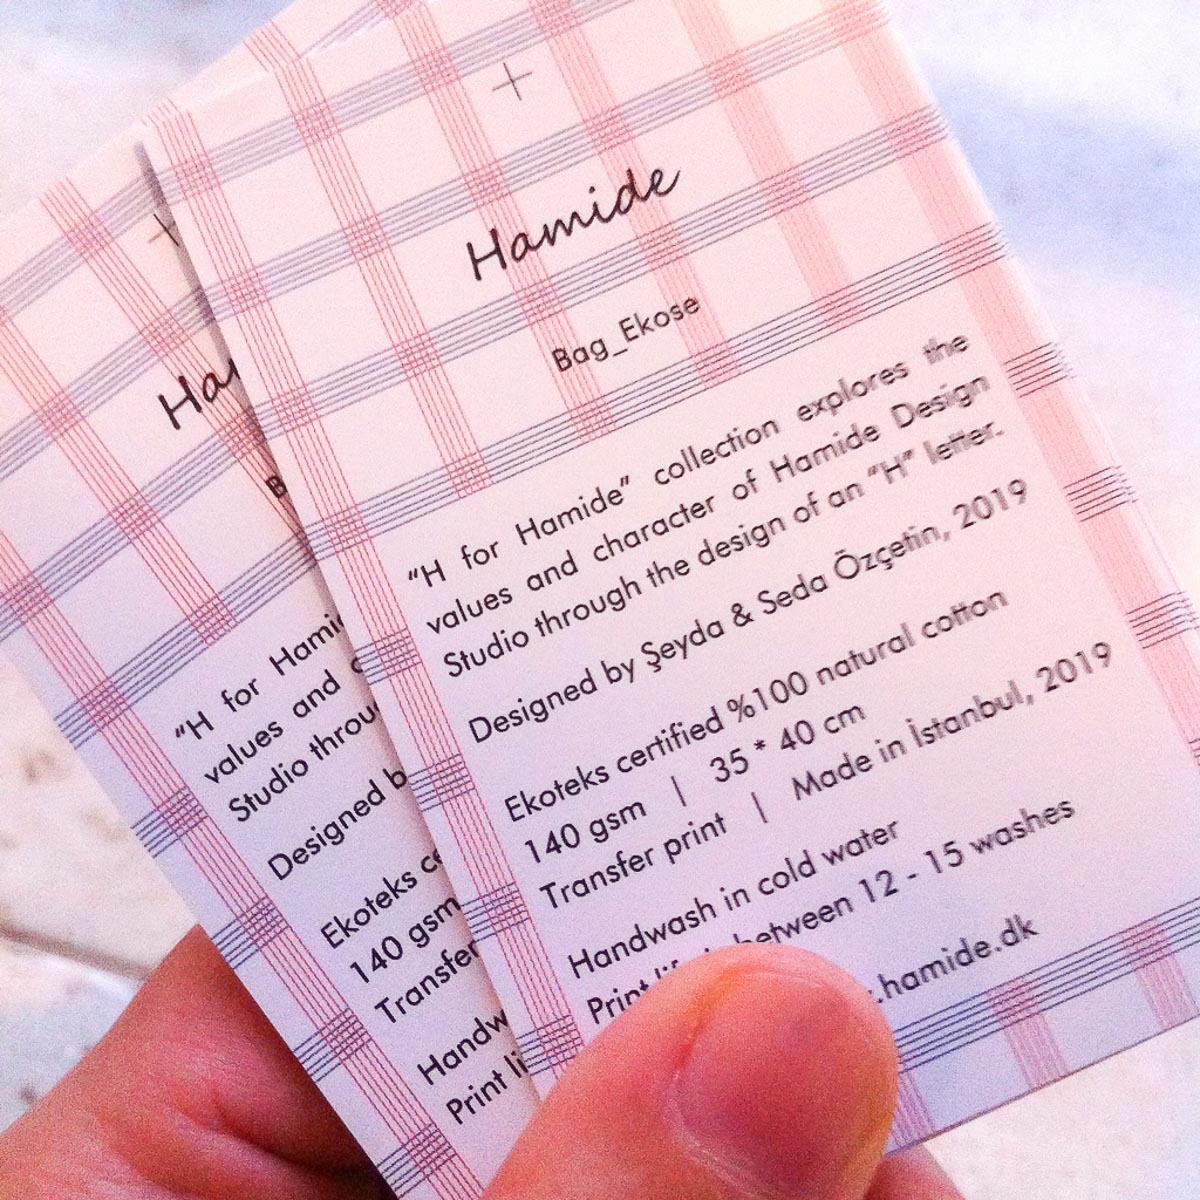 Hamide
Bag_Ekose
"H for Hamide" collection explores the
values and character of Hamide Design
Studio through the design of an "H" letter.
Designed by Şeyda & Seda Özçetin, 2019
Ekoteks certified %100 natural cotton
140 gsm | 35 * 40 cm
Transfer print | Made in İstanbul, 2019
Handwash in cold water
Print life is between 12 - 15 washes
.hamide.dk
Ha
B
"H for Hami
values and c
Studio throu
Designed b
Ekoteks ce
140 gsm
Transfer
Handw
Print li